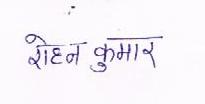 रोहन कुमार